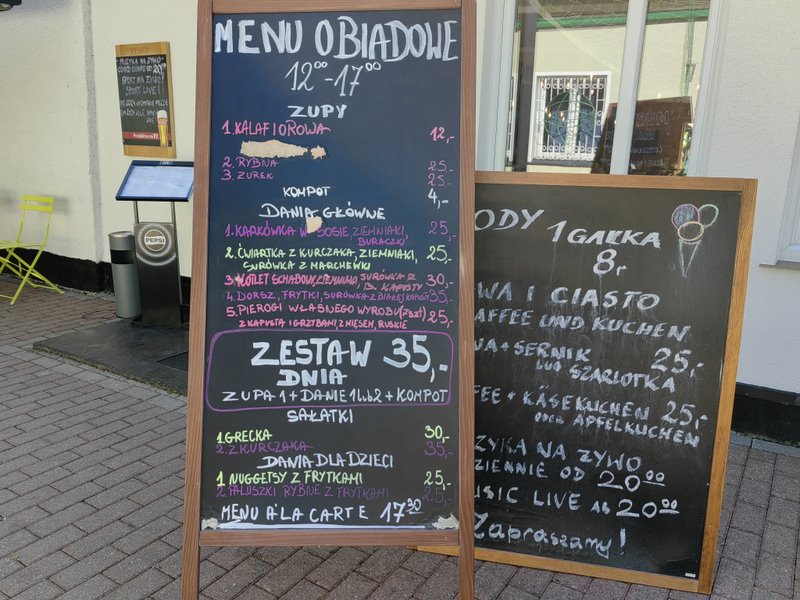 MENU OBIADOWE
12⁰⁰-17⁰⁰
ZUPY
1. KALAFIOROWA 12,-
2. RYBNA 25,-
3. ZUREK 25,-
KOMPOT 4,-
DANIA GŁÓWNE
1. KARKÓWKA W SOSIE, ZIEMNIAKI, 25,-
BURACZKI
2. ĆWIARTKA Z KURCZAKA, ZIEMNIAKI, 25,-
SURÓWKA Z MARCHEWKI
3. KOTLET SCHABOWY, ZIEMNIAKI, SURÓWKA Z 30,-
B. KAPUSTY
4. DORSZ, FRYTKI, SURÓWKA Z BIAŁEJ KAPUSTY 35,-
5. PIEROGI WŁASNEGO WYROBU (7SZT) 25,-
Z KAPUSTĄ I GRZYBAMI, Z MIĘSEM, RUSKIE
ZESTAW 35,-
DNIA
ZUPA 1 + DANIE 1 LUB 2 + KOMPOT
SAŁATKI
1. GRECKA 30,-
2. Z KURCZAKA 35,-
DANIA DLA DZIECI
1 NUGGETSY Z FRYTKAMI 25,-
2. PALUSZKI RYBNE Z FRYTKAMI 25,-
MENU A'LA CARTE 17³⁰
ODY 1 GAŁKA
8,-
WA I CIASTO
AFFEE UND KUCHEN
WA + SERNIK 25,-
LUB SZARLOTKA
FEE + KÄSEKUCHEN 25,-
ODER APFELKUCHEN
ZYKA NA ŻYWO
ZIENNIE OD 20⁰⁰
USIC LIVE AB 20⁰⁰
Zapraszamy!
MUZYKA NA ŻYWO
CODZIENNIE OD 20⁰⁰
SPORT NA ŻYWO!
SPORT LIVE!
PEPSI